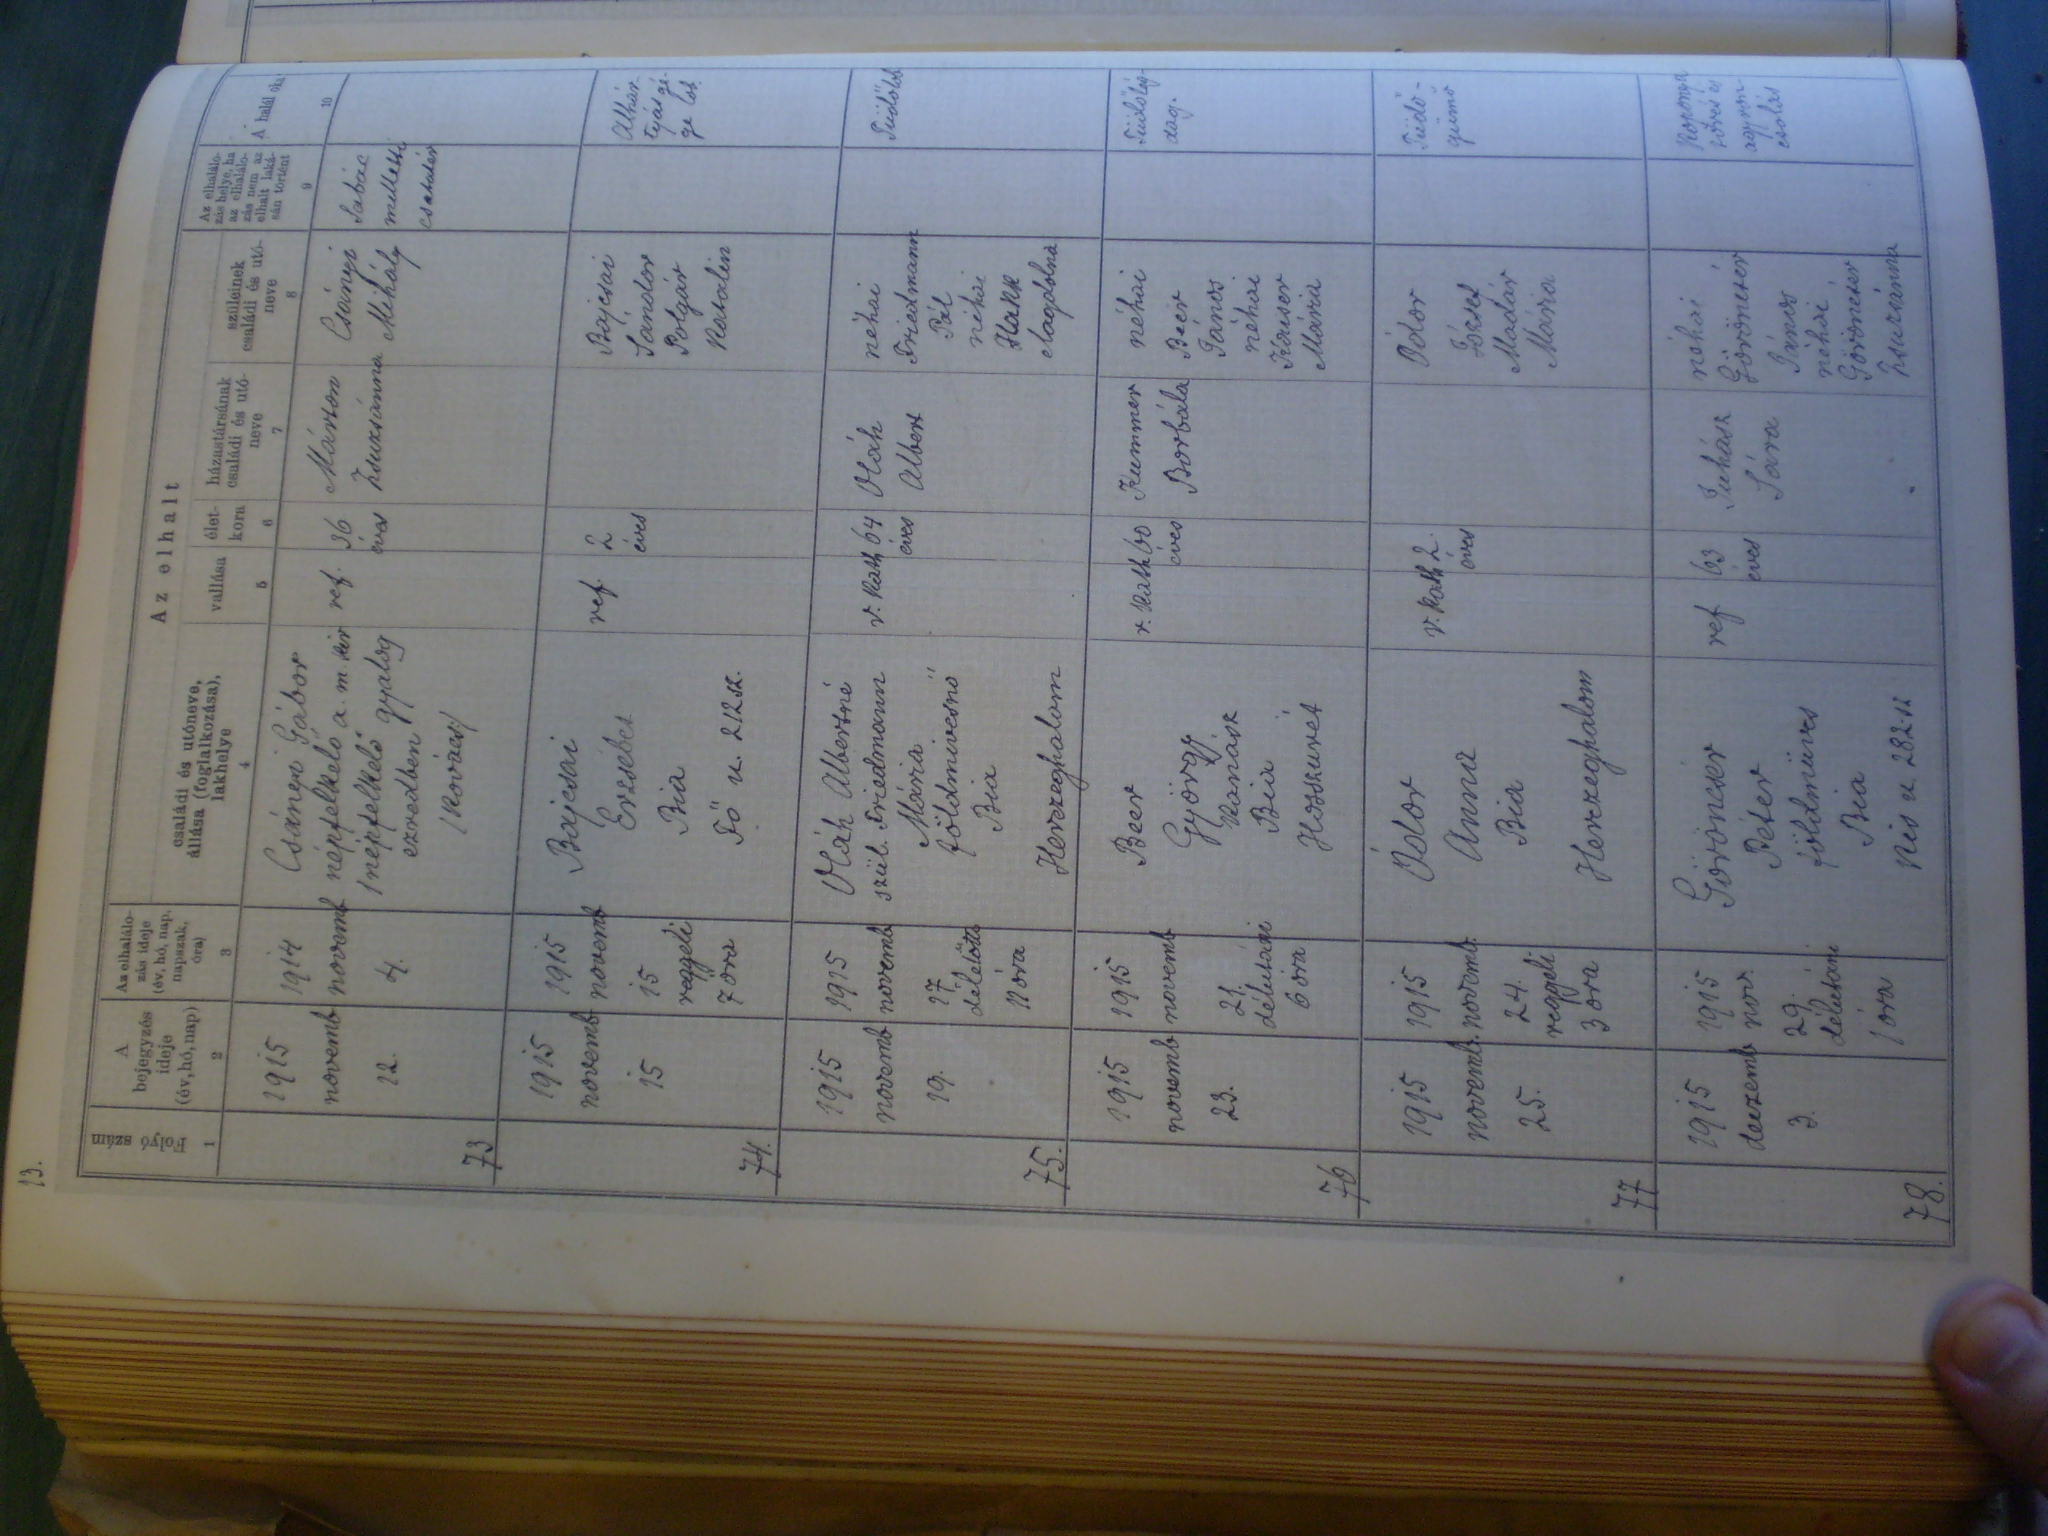 13.
Az elhalt
Folyó szám
A bejegyzés ideje (év, hó, nap)
Az elhalálozás ideje (év, hó, nap, napszak, óra)
családi és utóneve, állása (foglalkozása), lakhelye
vallása
életkora
házastársának családi és utóneve
szüleinek családi és utóneve
Az elhalálozás helye, ha az elhalálozás nem az elhalt lakásán történt
A halál oka
1 2 3 4 5 6 7 8 9 10
73
1915
novemb
12.
1914
novemb
4.
Csányi Gábor
népfelkelő a. m. kir
népfelkelő gyalog
ezredben
/kovács/
ref.
36
éves
Márton
Zsuzsánna
Csányi
Mihály
Sabác
melletti
csatatér
74.
1915
novemb
15
1915
novemb
15
reggeli
7 óra
Bajcsai
Erzsébet
Bia
Fő u. 212 sz.
ref.
2
éves
Bajcsai
Sándor
Polgár
Katalin
75.
1915
novemb
19.
1915
novemb
17.
délelőtti
11 óra
Oláh Albertné
szül. Friedmann
Mária
földmivesnő
Bia
Herczeghalom
r. kath
64
éves
Oláh
Albert
néhai
Friedmann
Pál
néhai
Hakk
Magdolna
76
1915
novemb
23.
1915
novemb
21.
délutáni
6 óra
Beer
György
kanász
Bia
r. kath
60
éves
Kummer
Borbála
néhai
Beér
János
néhai
Kaiser
Mária
Tüdőlég-
dag.
77
1915
novemb.
25.
1915
novemb.
24.
reggeli
3 óra
Ódor
Anna
Bia
Herczeghalom
r. kath
2.
éves
Ódor
József
Madár
Mária
Tüdő-
gümő
78.
1915
deczemb
3.
1915
nov.
29.
délutáni
1 óra
Göröncsér
Péter
földmüves
Bia
Kis u. 282 sz
ref
63
éves
Juhász
Sára
néhai
Göröncsér
János
néhai
Göröncsér
Zsuzsánna